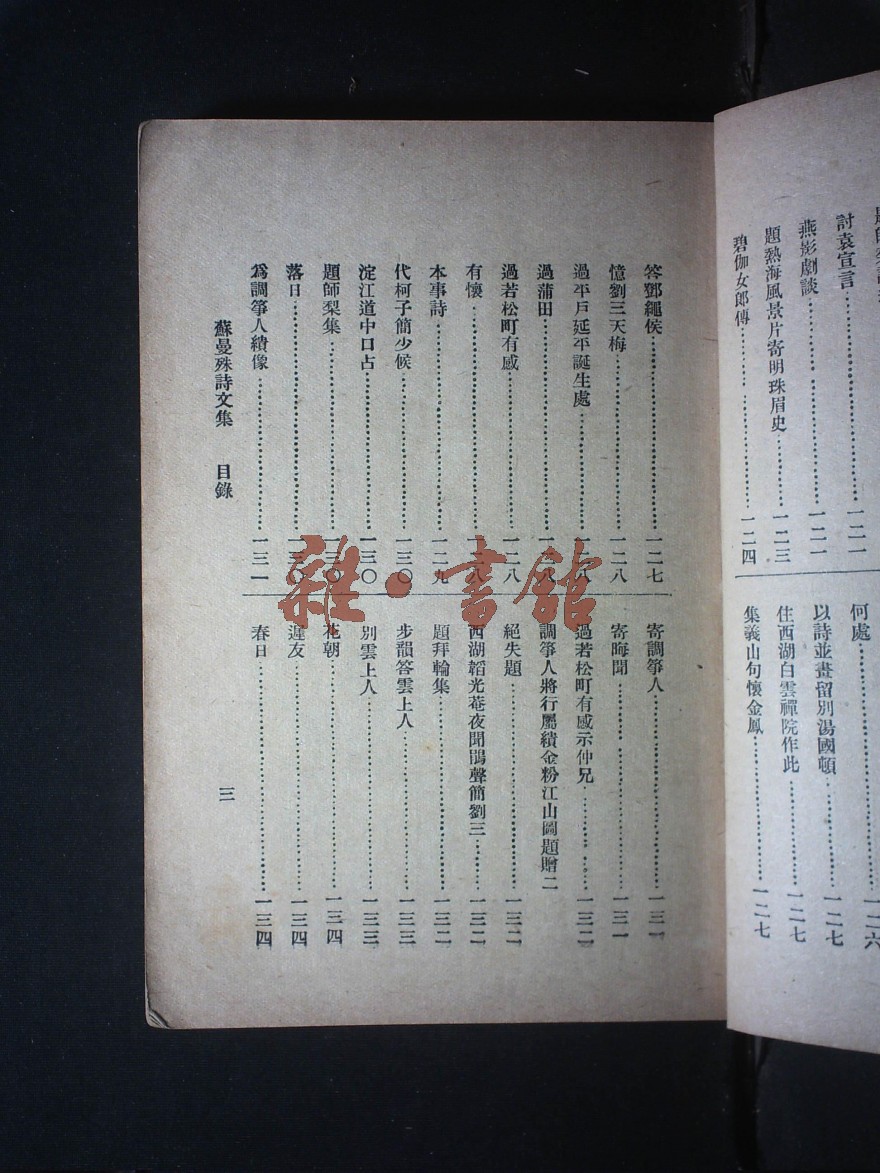 討袁宣言 一二一
燕影劇談 一二一
題熱海風景片寄明珠眉史 一二三
碧伽女郎傳 一二四
何處 一二六
以詩並畫留別湯國頓 一二七
住西湖白雲禪院作此 一二七
集義山句懷金鳳 一二七
答鄧繩侯 一二七
憶劉三天梅 一二八
過平戶延平誕生處 一二八
過蒲田 一二八
過若松町有感 一二八
有懷 一二八
本事詩 一二九
代柯子簡少候 一三〇
淀江道中口占 一三〇
題師梨集 一三〇
落日 一三〇
為調箏人繢像 一三一
寄調箏人 一三一
寄晦聞 一三一
過若松町有感示仲兄 一三二
調箏人將行屬繢金粉江山圖題贈二
絕失題 一三二
西湖韜光菴夜聞鵑聲簡劉三 一三二
題拜輪集 一三二
步韻答雲上人 一三三
別雲上人 一三三
花朝 一三四
遲友 一三四
春日 一三四
蘇曼殊詩文集 目錄 三
雜·書館